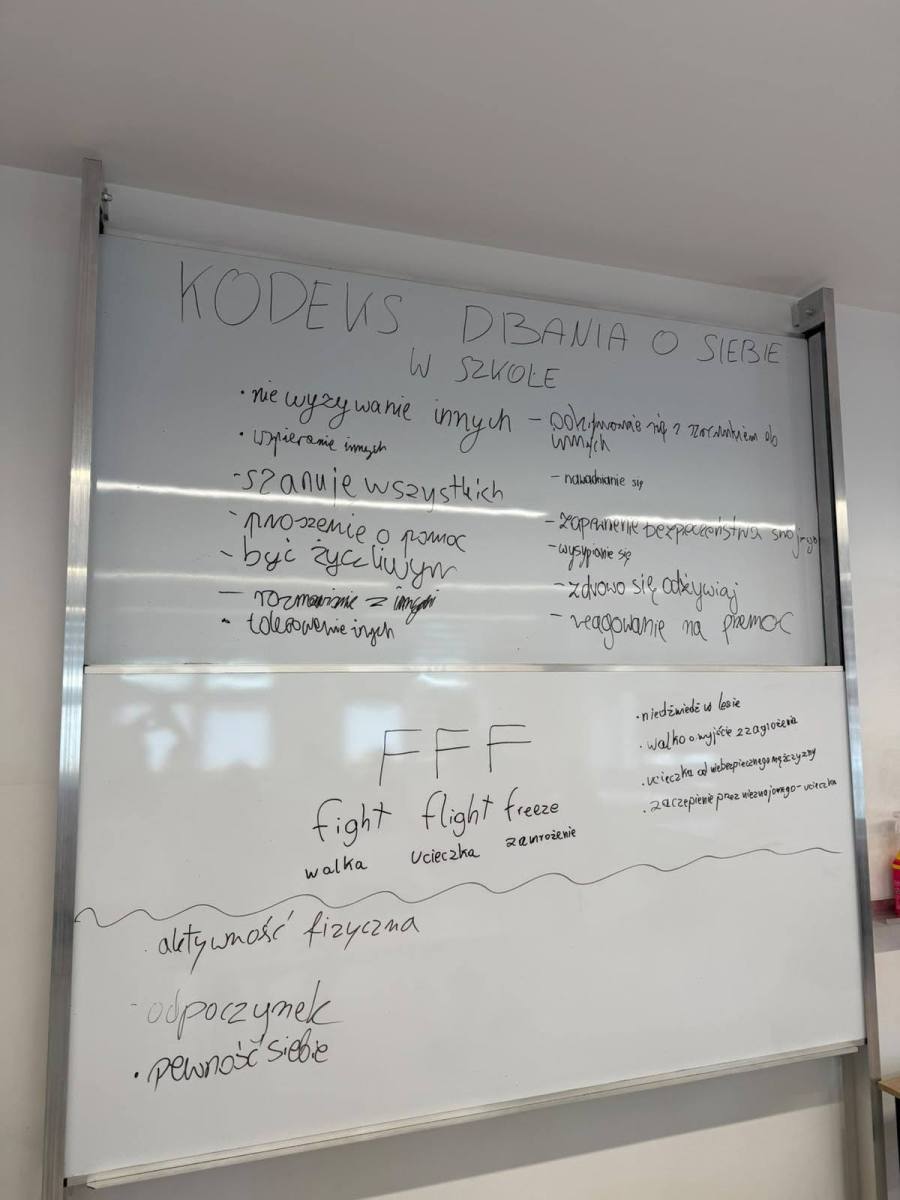 KODEKS DBANIA O SIEBIE
W SZKOLE
• nie wyzywanie innych
• wspieranie innych
- szanuję wszystkich
- proszenie o pomoc
- być życzliwym
- rozmawianie z innymi
• tolerowanie inych
- się z szacunkiem do
innych
- nawadnianie się
- zapewnienie bezpieczeństwa swojego
- wysypianie się
- zdrowo się odżywiaj
- reagowanie na przemoc
FFF
fight flight freeze
walka ucieczka zamrożenie
• niedźwiedź w lesie
• walka o wyjście z zagrożenia
• ucieczka od niebezpiecznego mężczyzny
• zaczepienie przez nieznajomego - ucieczka
• aktywność fizyczna
- odpoczynek
• pewność siebie